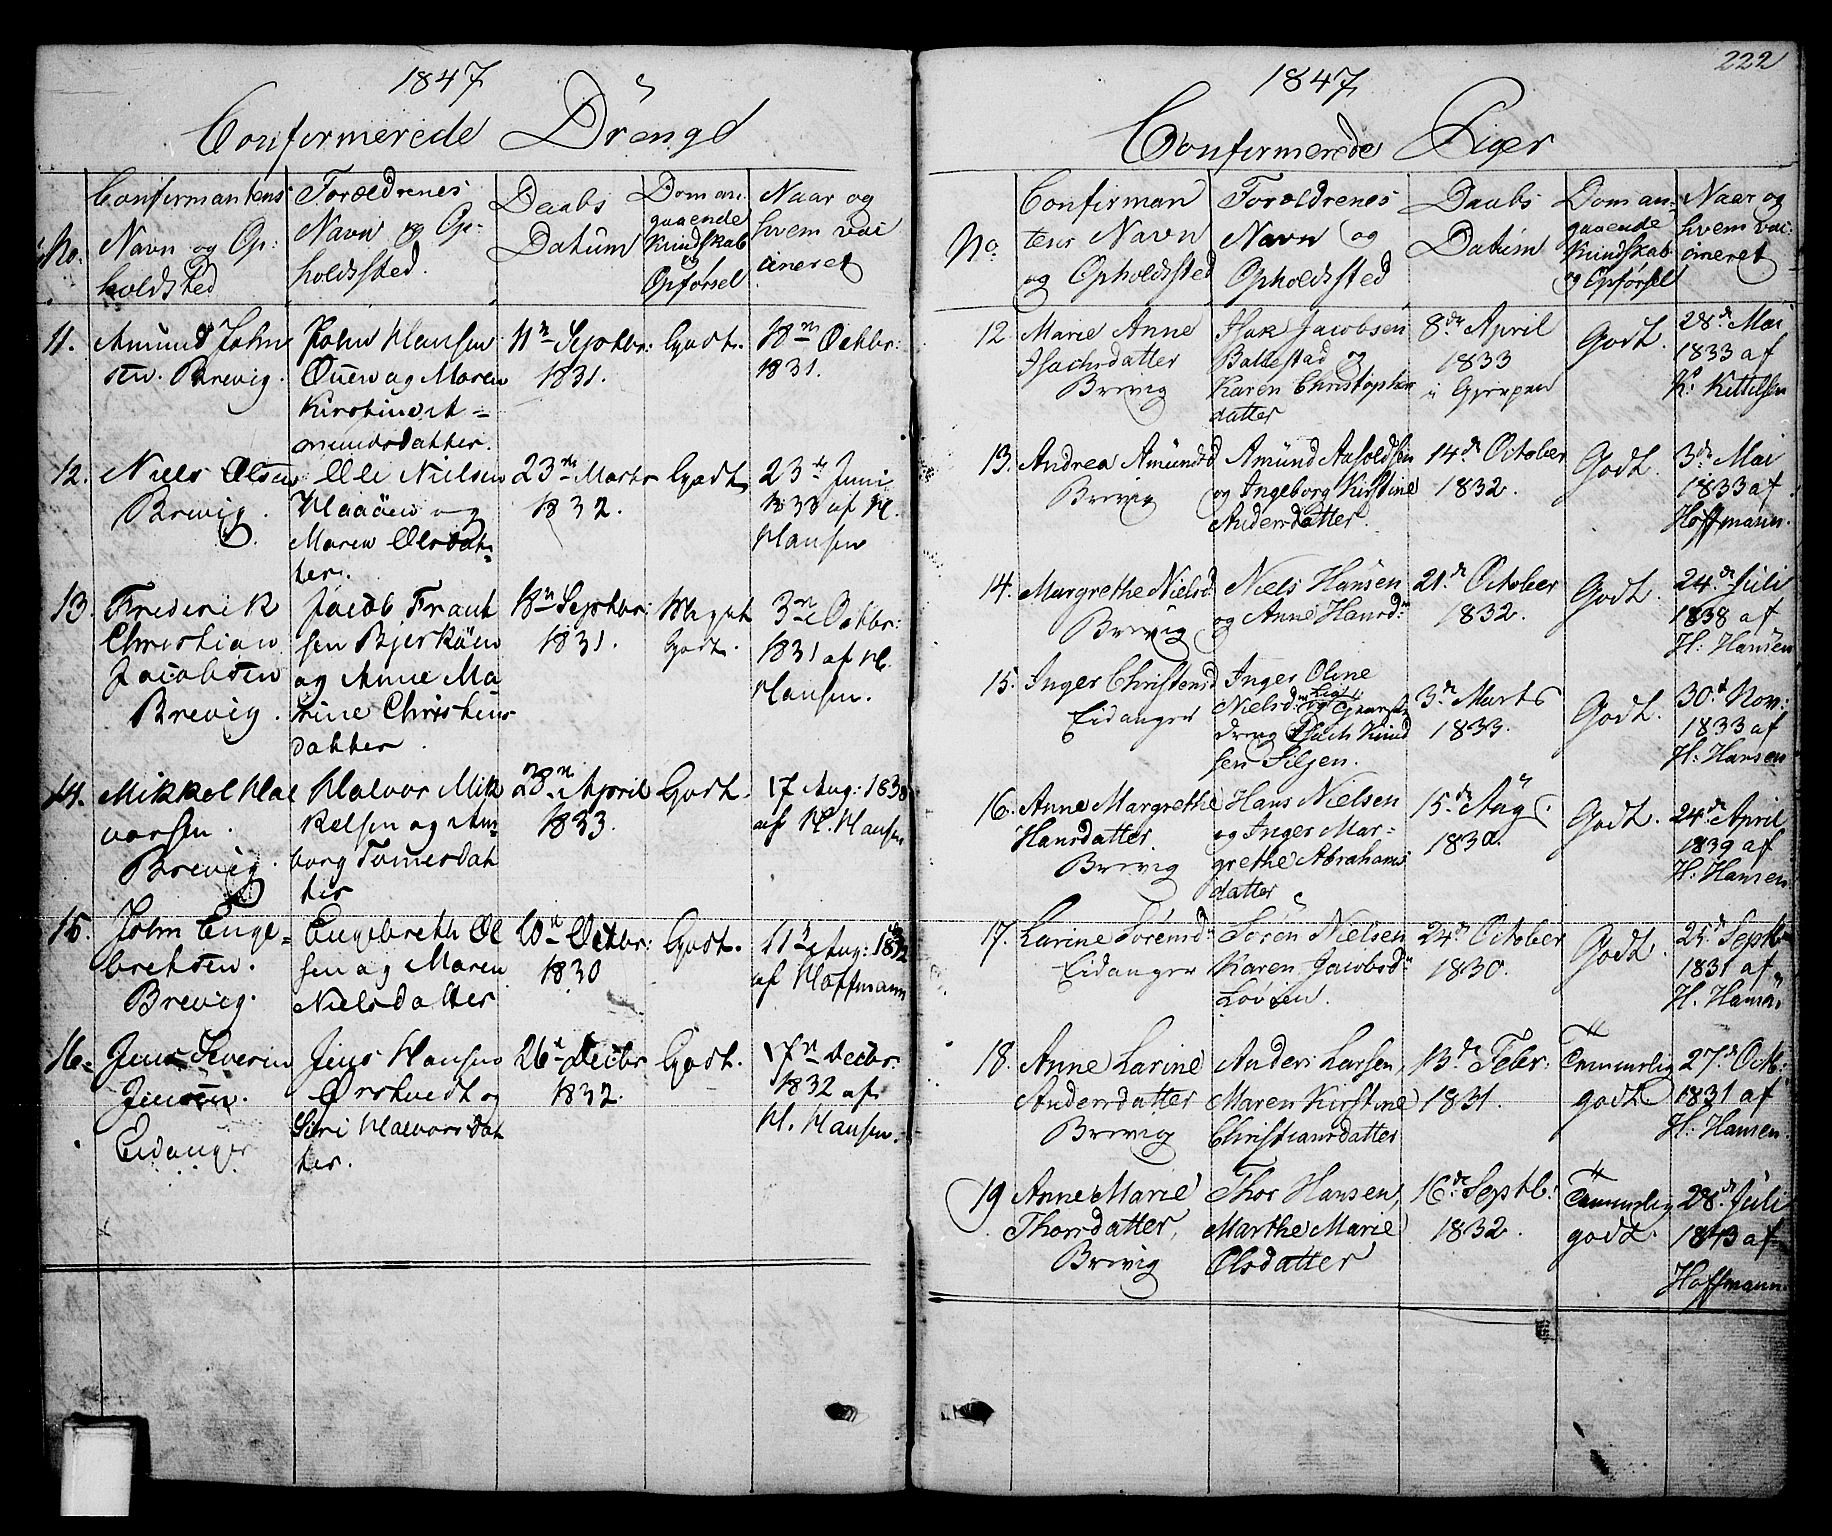 1847
Confirmerede Drenge
No.
Confirmantens
Navn og Op:
holdsted
Forældrenes
Navn og Op:
holdssted.
Daabs
Datum
Dom an
gaaende
Kundskab
og
Opførsel
Naar og
hvem vac
cineret
11.
Amund John
sen. Brevig.
John Hansen
og Maren
Kirstine A=
mundsdatter.
11te Septbr:
1831.
Godt.
18de Octbr:
1831.
12.
Niels Olsen
Brevig.
Ole Nielsen
Haaöen og
Maren Olsdat=
ter.
23de Marts
1832.
Godt
23de Juni
1833 af H.
Hansen
13.
Frederik
Christian
Jacobsen
Brevig.
Jacob Frant
sen Bjerköen
og Anne Ma
rine Christens
datter.
18de Septbr:
1831.
Meget
Godt.
3de Octbr:
1831 af H.
Hansen.
14.
Mikkel Hal
vorsen.
Brevig.
Halvor Mik
kelsen og An
borg Tomesdat
ter
28de April
1833.
Godt.
17 Aug: 1838
af H. Hansen
15.
John Enge=
bretsen.
Brevig.
Engebreth Ol
sen og Maren
Nielsdatter
10de Octbr:
1830
Godt.
11te Aug: 1832
af Hoffmann
16.
Jens Severin
Jensen.
Eidanger
Jens Hansen
Ørstvedt og
Siri Halvorsdat
ter.
26de Decbr
1832.
Godt.
17de Decbr:
1832 af
H. Hansen.
222
1847
Confirmerede Piger
No
Confirman
tens Navn
og Opholdssted
Forældrenes
Navn og
Opholdssted
Daabs
Datum
Dom an=
gaaende
Kundskab
og Opførsel
Naar og
hvem vac
cineret
12.
Marie Anne
Isachsdatter
Brevig
Isak Jacobsen
Ballestad og
Karen Christopher
datter
8de April
1833
i Gjerpen
Godt.
28de Mai
1833 af
K. Kittelsen
13.
Andrea Amundsd
Brevig
Amund Aasoldsen
og Ingeborg Kirstine
Andersdatter.
14de October
1832.
Godt.
3de Mai
1833 af
Hoffmann.
14.
Margrethe Nielsd.
Brevig
Niels Hansen
og Anne Hansd:
21de October
1832.
Godt.
24de Juli
1838 af
H: Hansen
15.
Inger Christensd
Eidanger
Inger Oline
Nielsd: og
dreng Isach Knud
sen Siljen.
3de Marts
1833.
Godt.
30d Nov:
1833 af
H: Hansen
16.
Anne Margrethe
Hansdatter.
Brevig
Hans Nielsen
og Inger Mar=
grethe Abrahams
datter
15de Aug.
1832.
Godt.
24de April
1839 af
H: Hansen
17.
Larine Sörensd:
Eidanger
Sören Nielsen
Karen Jacobsd:
Löven.
24de October
1830.
Godt.
25de Septb
1831 af
H. Hansen
18.
Anne Larine
Andersdatter
Brevig
Anders Larsen,
Maren Kirstine
Christiansdatter
13de Febr:
1831.
Temmelig
godt
27de Octb:
1831 af
H: Hansen.
19
Anne Marie
Thorsdatter,
Brevig
Thor Hansen,
Marthe Marie
Olsdatter
16de Septb:
1832.
Temmelig
godt.
28de Juli
1843 af
Hoffmann.